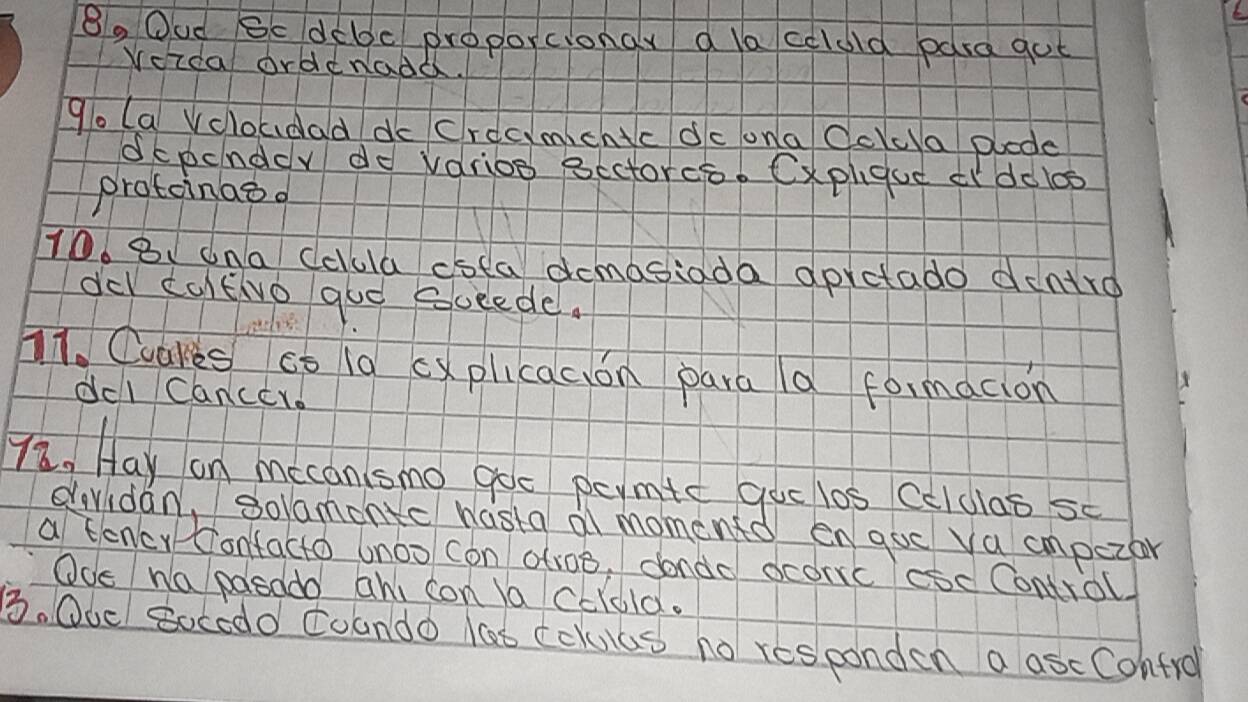 8. Que se debe proporcionar a la celula para que
crezca ordenada.
9. La velocidad de crecimiento de una Celula puede
depender de varios sectores. Explique el de los
proteinas.
10. Si una celula esta demasiada apretado dentro
del cultivo que suceede.
11. Cuales es la explicación para la formación
del Cancer.
12. Hay un mecanismo que permite que los Celulas se
dividan, solamente hasta el momento en que va empezar
a tener contacto unos con otros, donde ocorre ese Control
Que ha pasado ahi con la Celula.
13. Que sucedo Cuando las celulas no responden a ase Control